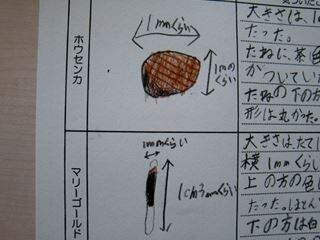 ホウセンカ
1mmくらい
1mm
くらい
大きさは、1
だった。
たねに、茶色
がついてい
たねの下の方
形は丸かった。
マリーゴールド
1mmくらい
1cm3mmくらい
大きさは、たて1
横1mmくらい
上の方の色
だった。ほとん
下の方は白